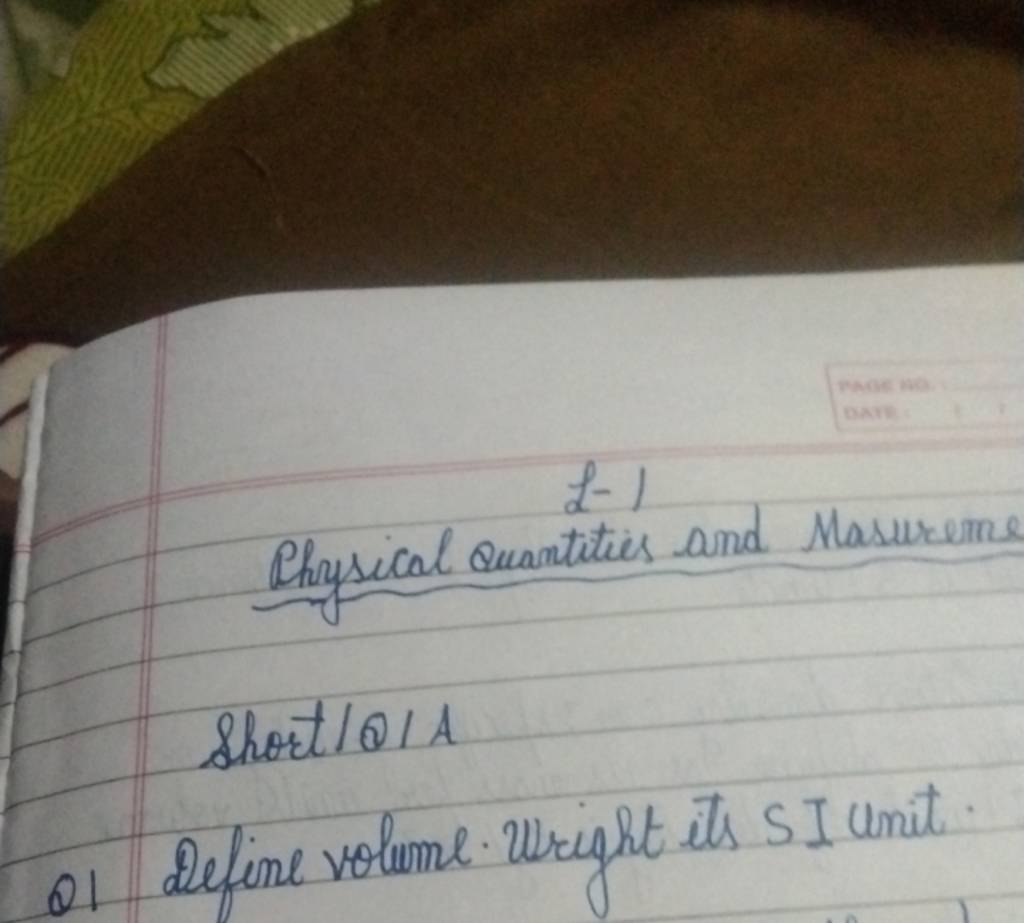 PAGE NO. :
DATE : / /
L-1
Physical Quantities and Masureme
Short/Q/A
Q1 Define volume. Wright its S I Unit.